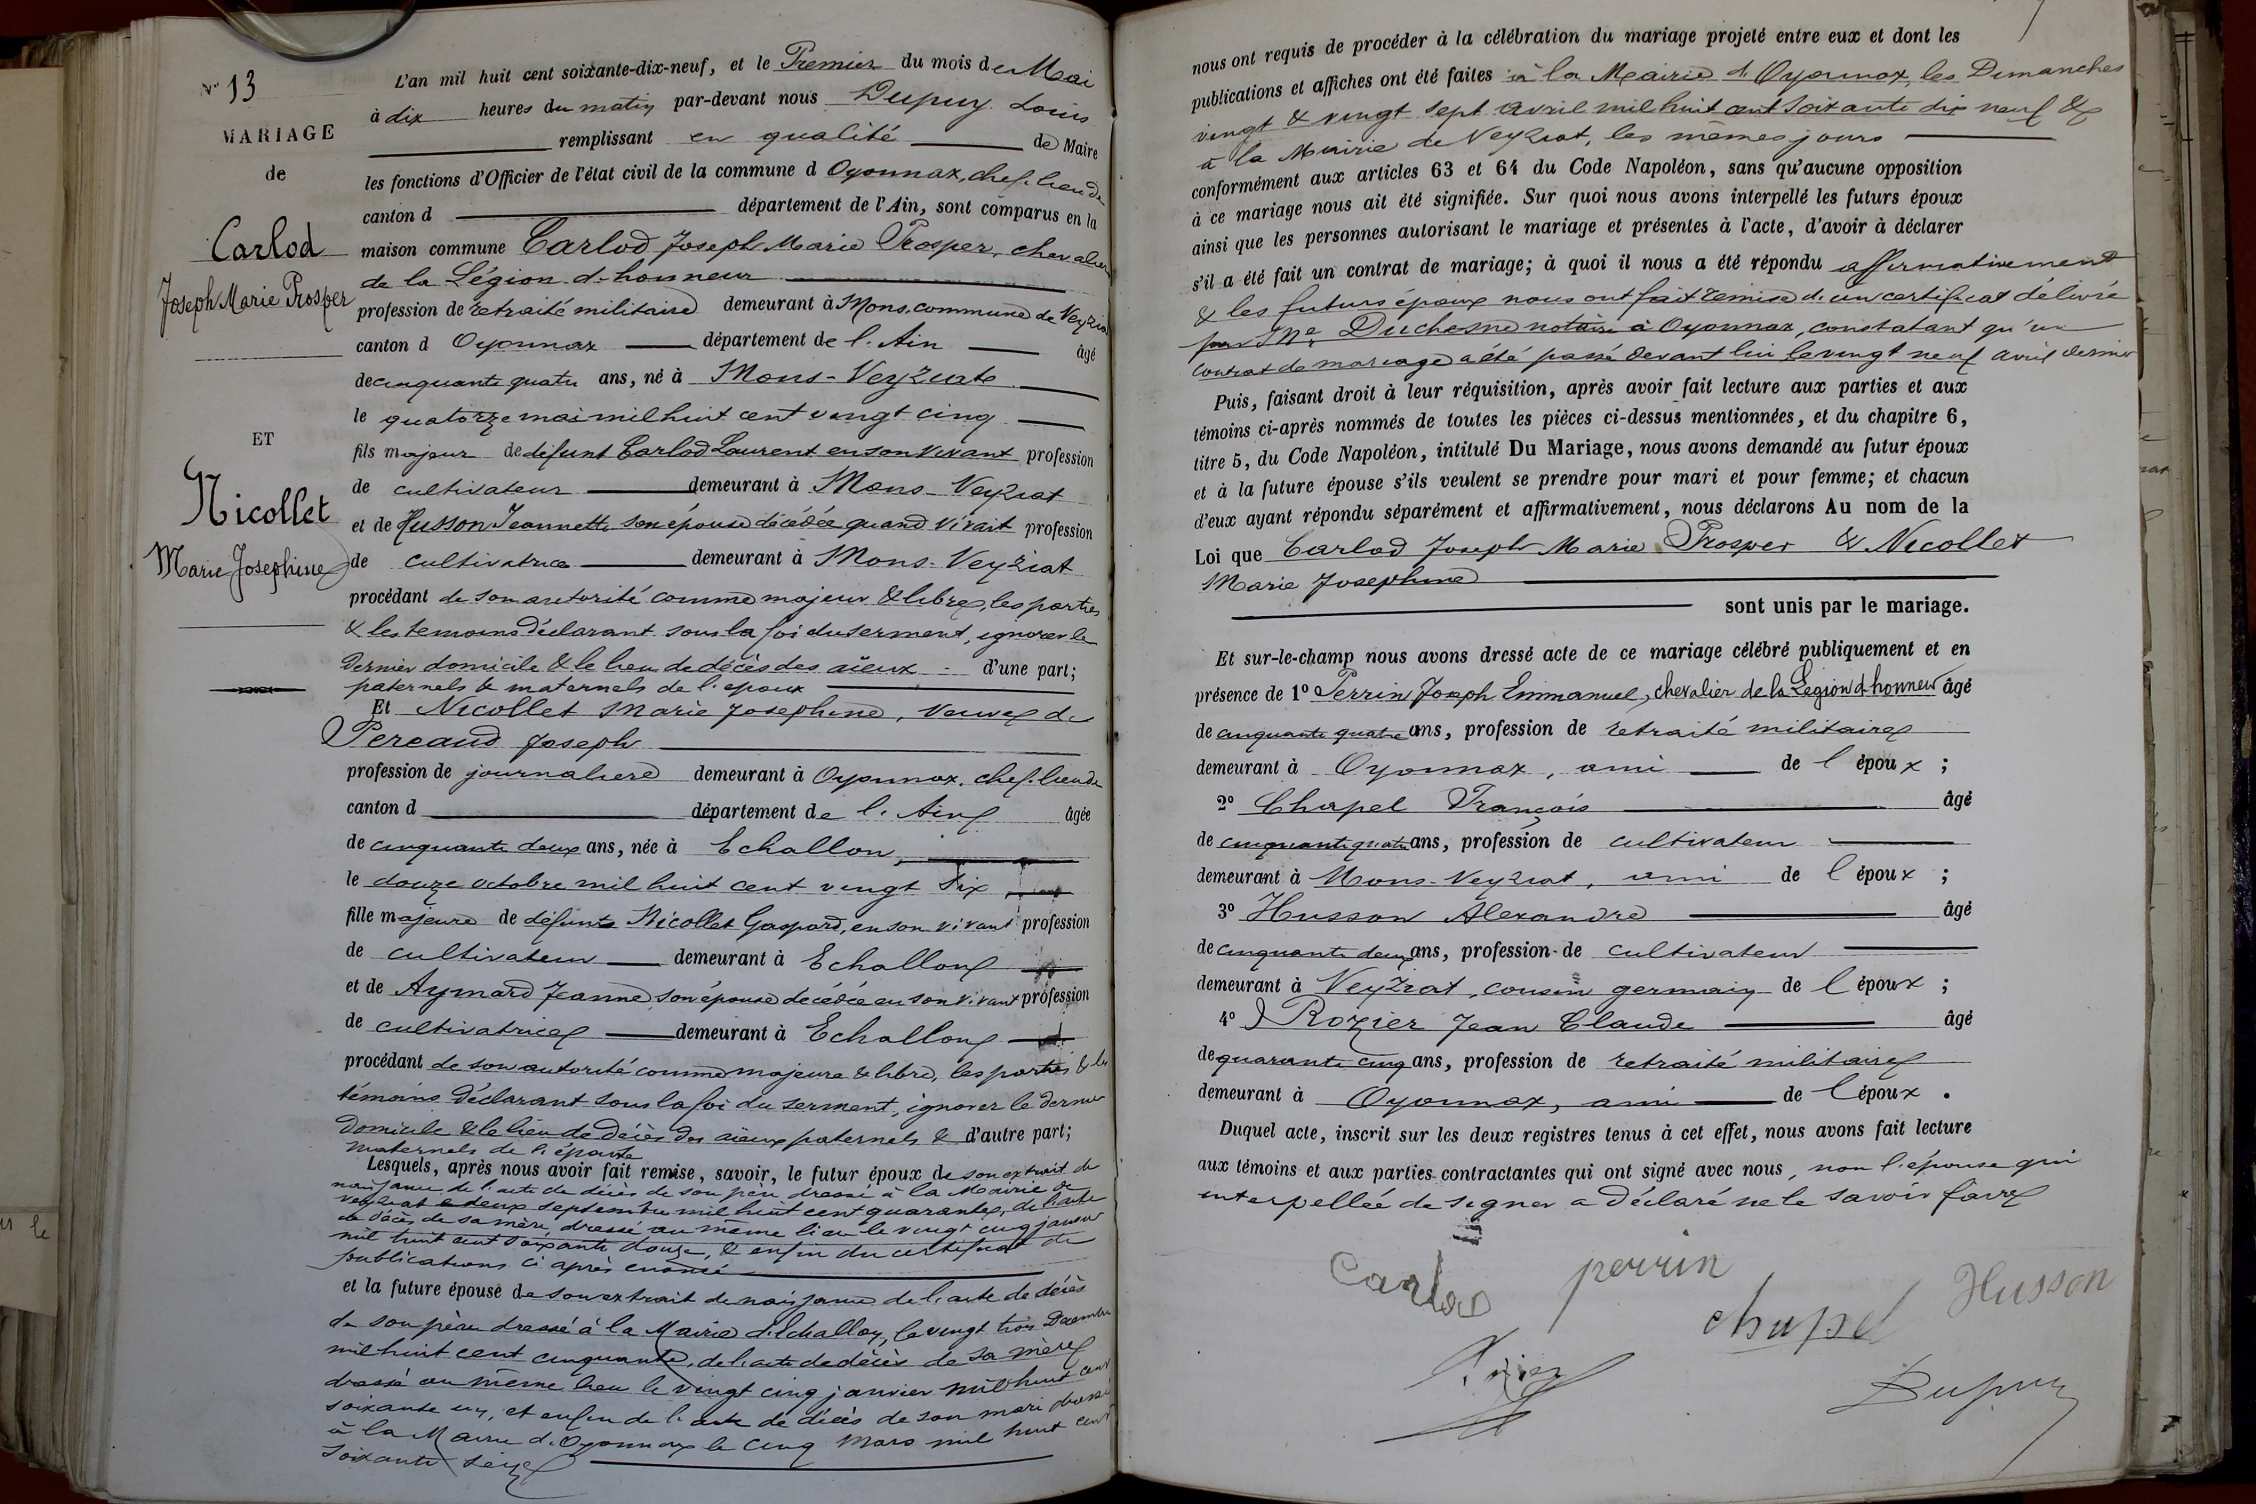 N° 13
MARIAGE
de
Carlod
Joseph Marie Prosper
ET
Nicollet
Marie Josephine
L'an mil huit cent soixante-dix-neuf, et le Premier du mois de Mai
à dix heures du matin par-devant nous Dupuy Louis
remplissant en qualité de Maire
les fonctions d'Officier de l'état civil de la commune d Oyonnax, chef-lieu de
canton d département de l'Ain, sont comparus en la
maison commune Carlod Joseph Marie Prosper, chevalier
de la Légion d'honneur
profession de retraité militaire demeurant à Mons, commune de Veyziat
canton d Oyonnax département de l'Ain âgé
de cinquante quatre ans, né à Mons-Veyziat
le quatorze mai mil huit cent vingt cinq
fils majeur de défunt Carlod Laurent en son vivant profession
de cultivateur demeurant à Mons-Veyziat
et de Husson Jeannette son épouse décédée quand vivait profession
de cultivatrice demeurant à Mons-Veyziat
procédant de son autorité comme majeur & libre, les parties
& les temoins déclarant sous la foi du serment, ignorer le
dernier domicile & le lieu de décès des aïeux d'une part;
paternels & maternels de l'epoux
Et Nicollet Marie Josephine, veuve de
Percaud Joseph
profession de journaliere demeurant à Oyonnax, chef-lieu de
canton d département de l'Ain âgée
de cinquante deux ans, née à Echallon,
le douze octobre mil huit cent vingt six
fille majeure de défunts Nicollet Gaspard, en son vivant profession
de cultivateur demeurant à Echallon
et de Aymard Jeanne son épouse décédée en son vivant profession
de cultivatrice demeurant à Echallon
procédant de son autorité comme majeure & libre, les parties & les
témoins déclarant sous la foi du serment, ignorer le dernier
domicile & le lieu de décès des aïeux paternels & d'autre part;
maternels de l'épouse
Lesquels, après nous avoir fait remise, savoir, le futur époux de son extrait de
naissance de l'acte de décès de son père dressé à la Mairie de
Veyziat le deux septembre mil huit cent quarante, de l'acte
de décès de sa mère dressé au même lieu le vingt cinq janvier
mil huit cent soixante douze, & enfin du certificat de
publications ci après enoncé
et la future épouse de son extrait de naissance de l'acte de décès
de son père dressé à la Mairie d'Echallon, le vingt trois Decembre
mil huit cent cinquante, de l'acte de décès de sa mère
dressé au même lieu le vingt cinq janvier mil huit cent
soixante un, et enfin de l'acte de décès de son mari dressé
à la Mairie d'Oyonnax le cinq Mars mil huit cent
soixante seize
nous ont requis de procéder à la célébration du mariage projeté entre eux et dont les
publications et affiches ont été faites à la Mairie d'Oyonnax, les Dimanches
vingt & vingt sept avril mil huit cent soixante dix neuf &
à la Mairie de Veyziat, les mêmes jours
conformément aux articles 63 et 64 du Code Napoléon, sans qu'aucune opposition
à ce mariage nous ait été signifiée. Sur quoi nous avons interpellé les futurs époux
ainsi que les personnes autorisant le mariage et présentes à l'acte, d'avoir à déclarer
s'il a été fait un contrat de mariage; à quoi il nous a été répondu affirmativement
& les futurs époux nous ont fait remise d'un certificat délivré
par Me Duchesne notaire à Oyonnax, constatant qu'un
contrat de mariage a été passé devant lui le vingt neuf avril dernier
Puis, faisant droit à leur réquisition, après avoir fait lecture aux parties et aux
témoins ci-après nommés de toutes les pièces ci-dessus mentionnées, et du chapitre 6,
titre 5, du Code Napoléon, intitulé Du Mariage, nous avons demandé au futur époux
et à la future épouse s'ils veulent se prendre pour mari et pour femme; et chacun
d'eux ayant répondu séparément et affirmativement, nous déclarons Au nom de la
Loi que Carlod Joseph Marie Prosper & Nicollet
Marie Josephine
sont unis par le mariage.
Et sur-le-champ nous avons dressé acte de ce mariage célébré publiquement et en
présence de 1° Perrin Joseph Emmanuel, chevalier de la Legion d'honneur âgé
de cinquante quatre ans, profession de retraité militaire
demeurant à Oyonnax, ami de l époux ;
2° Chapel François âgé
de cinquante quatre ans, profession de cultivateur
demeurant à Mons-Veyziat, ami de l époux ;
3° Husson Alexandre âgé
de cinquante deux ans, profession de cultivateur
demeurant à Veyziat, cousin germain de l époux ;
4° Rozier Jean Claude âgé
de quarante cinq ans, profession de retraité militaire
demeurant à Oyonnax, ami de l époux .
Duquel acte, inscrit sur les deux registres tenus à cet effet, nous avons fait lecture
aux témoins et aux parties contractantes qui ont signé avec nous, non l'épouse qui
interpellée de signer a déclaré ne le savoir faire
Carlod perrin Husson
chapel
Rozier
Dupuy